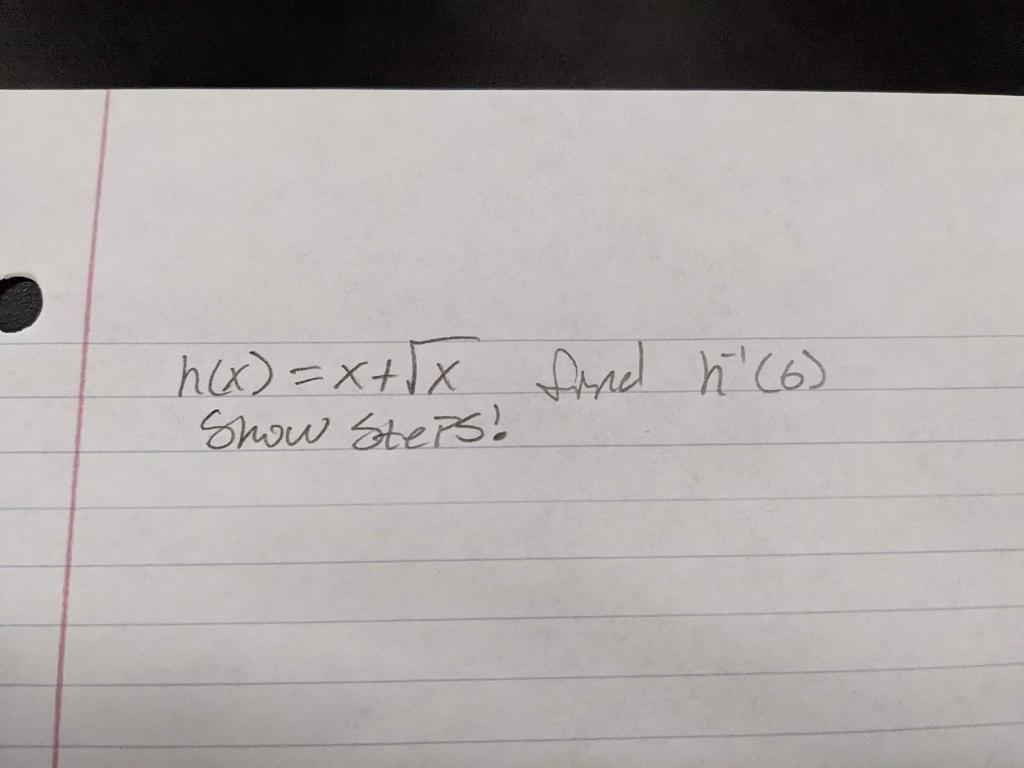 h(x) = x+√x find h⁻¹(6)
Show Steps!